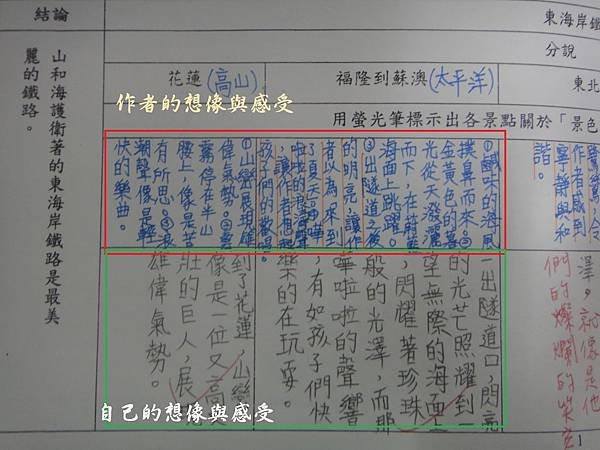 東海岸鐵
分說
東北
福隆到蘇澳(太平洋)
花蓮(高山)
結論
用螢光筆標示出各景點關於「景色
作者的想像與感受
鷺鷥,令
作者感到
寧靜與和
諧。
澤,就像是他
們的燦爛的笑容
①鹹味的海風
撲鼻而來。②
金黃色的
光從天潑灑
而下,在蔚藍
海面上跳躍。
③出隧道之後
的明亮,讓作
者以為來到
了夏天。④嘩
啦啦的浪濤聲
,讓作者想起
孩子們的歡唱。
一出隧道口,閃亮
的光芒照耀到一
望無際的海面上
,閃耀著珍珠
般的光澤,而那
嘩啦啦的聲響
,有如孩子們快
樂的在玩耍。
①山巒展現雄
偉氣勢。②雲
霧停在半山
腰上,像是若
有所思。③浪
潮聲像是輕
快的樂曲。
到了花蓮,山巒
像是一位又高又
壯的巨人,展現
雄偉氣勢。
山和海護衛著的東海岸鐵路是最美
麗的鐵路。
自己的想像與感受
1